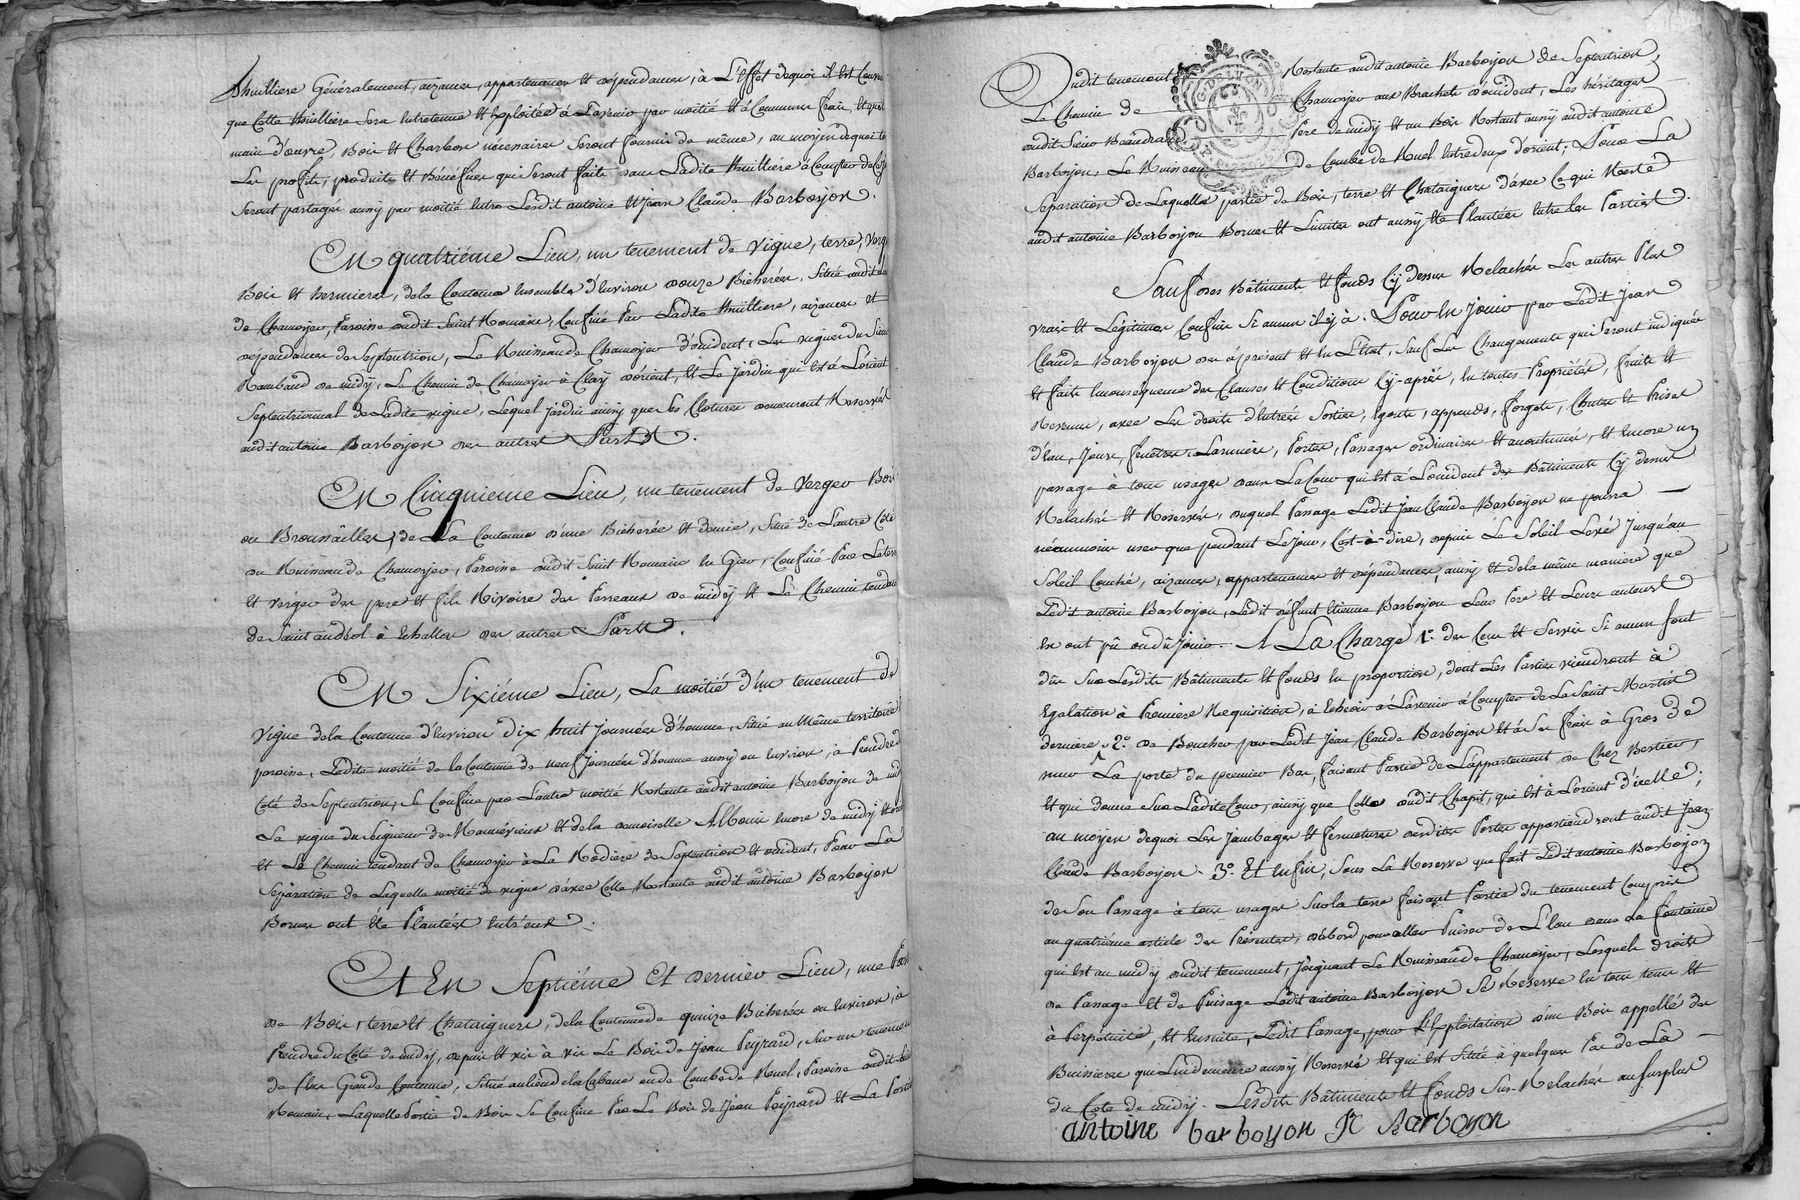 thuilliere Généralement, aizances, appartenances et dépendances, à L'effet dequoi il est Convenu
que Cette thuilliere sera Entretenüe et Exploitée à L'avenir par moitié et à Communs fraix, et que
main d'œuvre, Bois et Charbon nécessaires seront fournis de même, au moyen dequoi
Les profits, produits et Bénéfices qui seront faits dans Ladite thuilliere à Compter de
seront partagés aussy par moitié Entre Lesdits antoine et Jean Claude Barboyon.
En quatriéme Lieu, un tenement de vigne, terre, verger
Bois et hermieres, de la Contenue Ensemble d'Environ douze Bicherées, situé audit
de Chamoyer, Paroisse dudit Saint Romain, Confiné Par Ladite thuilliere, aizances et
dépendances de Septentrion, Le Ruisseau de Chamoyer d'occident, Les vignes du Sieur
Rambaud de midy, Le Chemin de Chamoyer à Clay d'orient, et Le jardin qui est à L'orient
Septentrional de Ladite vigne, Lequel jardin ainsy que ses Clotures demeurent Reservés
audit antoine Barboyon des autres Parts.
En Cinquieme Lieu, un tenement de verger Bois
ou Broussailles, de La Contenue d'une Bicherée et demie, situé de L'autre Côté
du Ruisseau de Chamoyer, Paroisse dudit Saint Romain En Gier, Confiné Par Le
et verger des pere et fils Rivoire des Perreaux de midy et Le Chemin tendant
de Saint andéol à Echallas des autres Parts.
En Sixiéme Lieu, La moitié d'un tenement de
vigne de la Contenue d'Environ Dix huit journées d'homme, situé au même territoire
paroisse, Ladite moitié de la Contenue de neuf journées d'homme aussy ou Environ, à Prendre
Coté de Septentrion, se Confine par L'autre moitié Restante audit antoine Barboyon de midy
La vigne du Seigneur de et de la demoiselle Encore de midy
et Le Chemin tendant de Chamoyer à La Rodiere de Septentrion et occident, Pour La
Séparation de Laquelle moitié de vigne d'avec Celle Restante audit antoine Barboyon
Bornes ont été Plantées Entr'eux.
Et En Septiéme et dernier Lieu, une Partie
de Bois, terre et Chataigners, de la Contenue de quinze Bicherées ou Environ, à
Prendre du Coté de midy, depuis et vis à vis Le Bois de Jean Peyrard, sur un tenement
de plus Grande Contenue, situé au Lieu de la Cabane ou de Combe de Ruel, Paroisse audit
Romain, Laquelle Partie de Bois se Confine Par Le Bois de Jean Peyrard et La Partie
Dudit tenement Restante audit antoine Barboyon de Septentrion,
Le Chemin de Chamoyer aux Brachets d'occident, Les héritages
dudit Sieur Pere de midy et un Bois Restant aussy audit antoine
Barboyon, Le Ruisseau de Combe de Ruel Entredeux d'orient; Pour La
Séparation de Laquelle partie de Bois, terre et Chataigners d'avec Ce qui Reste
audit antoine Barboyon Bornes et Limites ont aussy été Plantées Entre les Parties.
Sauf desd Bâtiments et fonds Cy dessus Relachés Les autres Plus
vrais et Légitimes Confins si aucun il y à. Pour En Jouir par Ledit Jean
Claude Barboyon dès àprésent et En L'Etat, sauf Les Changements qui seront indiqués
et faits En conséquence des Clauses et Conditions Cy-après, En toutes Propriétés, fruits et
Revenus, avec Les droits d'Entrées Sorties, Egouts, appends, forgets, Chutes et Prises
d'Eau, Jours, fenêtres, Larmiers, Portes, Passages ordinaires et accoutumés, et Encore un
passage à tous usages dans La Cour qui est à L'occident des Bâtiments Cy dessus
Relachés et Reservés, duquel Passage Ledit Jean Claude Barboyon ne pourra
néanmoins user que pendant Le jour, C'est-à-dire, depuis Le Soleil Levé Jusqu'au
Soleil Couché, aizances, appartenances et dépendances, ainsy et de la même maniere que
Ledit antoine Barboyon, Ledit défunt Etienne Barboyon Leur Pere et Leurs auteurs
En ont pû ou dû Jouir. A La Charge 1°. des Cens et Servis si aucun sont
dûs sur Lesdits Bâtiments et fonds En proportion, dont Les Parties viendront à
Egalation à Premiere Requisition, à Echeoir à L'avenir à Compter de La Saint Martin
derniere, 2°. de Boucher par Ledit Jean Claude Barboyon et à ses fraix à Gros de
murs La porte du premier Bas, faisant Partie de L'appartement de Chez Bertier,
et qui donne sur Ladite Cour, ainsy que Celle dudit Chapit, qui est à L'orient d'icelle;
au moyen dequoi Les Jambages et fermetures desdites Portes appartiendront audit Jean
Claude Barboyon. 3°. Et Enfin, sous La Reserve que fait Ledit antoine Barboyon
de son Passage à tous usages sur La terre faisant Partie du tenement Compris
au quatriéme article des Presentes, d'abord pour aller Puiser de L'Eau dans La fontaine
qui est au midy dudit tenement, joignant Le Ruisseau de Chamoyer, Lesquels droits
de Passage et de Puisage Ledit antoine Barboyon se Reserve En tous tems et
à Perpetuité, et Ensuite, Ledit Passage, pour L'Exploitation d'un Bois appellé des
Buissieres qui Lui demeure aussy Reservé et qui est situé à quelques Pas de Là
du Coté de midy. Lesdits Bâtiments et fonds sus Relachés au surplus
antoine barboyon JC Barboyon